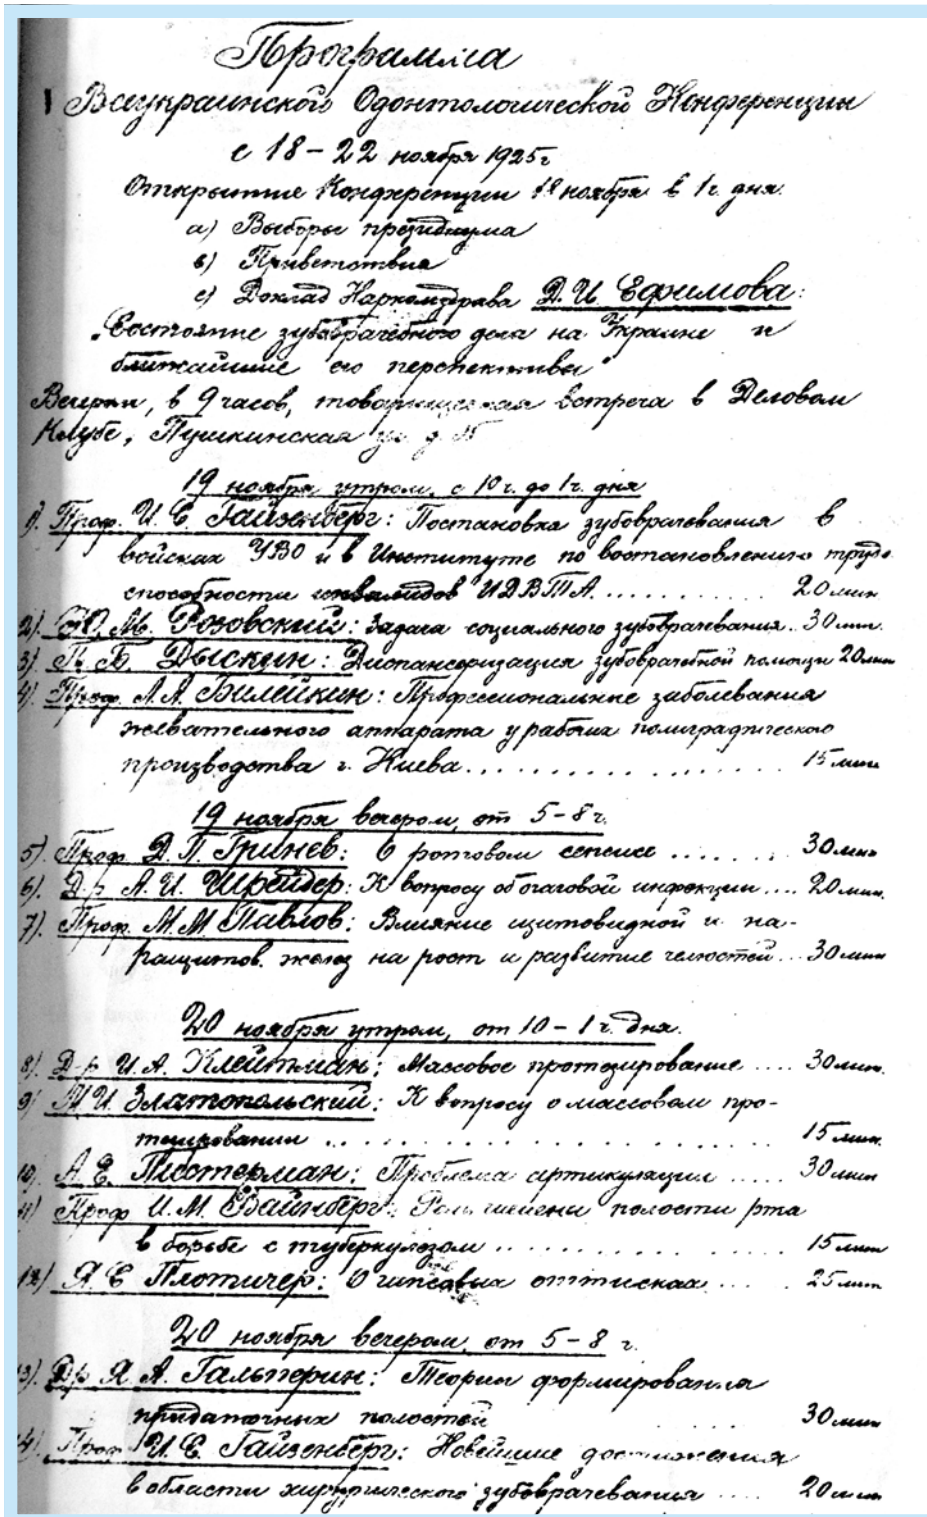 Программа
I Всеукраинской Одонтологической Конференции
с 18 – 22 ноября 1925 г
Открытие Конференции 18 ноября в 1 г. дня.
а) Выборы президиума
в) Приветствия
с) Доклад Наркомздрава Д. И. Ефимова:
„Состояние зубоврачебного дела на Украине и
ближайшие его перспективы"
Вечером, в 9 часов, товарищеская встреча в Деловом
Клубе, Пушкинская
19 ноября утром, с 10 ч. до 1 ч. дня
1). Проф. И. Е. Гайзенберг: Постановка зубоврачевания в
войсках УВО и в Институте по востановлению трудо-
способности инвалидов ИДВТА. ........... 20 мин
2). Ю. М. Розовский: Задача социального зубоврачевания.. 30 мин.
3). П. Б. Дыскин: Диспансеризация зубоврачебной помощи 20 мин
4). Проф. А. А. Билейкин: Профессиональные заболевания
жевательного аппарата у рабочих полиграфического
производства г. Киева................ 15 мин
19 ноября вечером, от 5 – 8 ч.
5). Проф. Д. П. Гринев: О ротовом сепсисе ....... 30 мин
6). Д-р А. И. Шрейдер: К вопросу об очаговой инфекции.... 20 мин.
7). Проф. М. М. Павлов: Влияние щитовидной и па-
ращитов. желез на рост и развитие челюстей... 30 мин
20 ноября утром, от 10 – 1 ч. дня.
8). Д-р И. А. Клейтман: Массовое протезирование .... 30 мин.
9) М. И. Златопольский: К вопросу о массовом про-
тезировании .................. 15 мин.
10). А. Е. Тестерман: Проблема артикуляции ..... 30 мин
11) Проф И. М. Файнберг: Роль гигиены полости рта
в борьбе с туберкулозом ............ 15 мин
12) Я. Е Плотичер: О гипсовых оттисках ..... 25 мин
20 ноября вечером, от 5 – 8 ч.
13). Д-р Я. А. Гальперин: Теория формирования
придаточных полостей 30 мин
14). Проф. И. Е. Гайзенберг: Новейшие достижения
в области хирургического зубоврачевания .... 20 мин